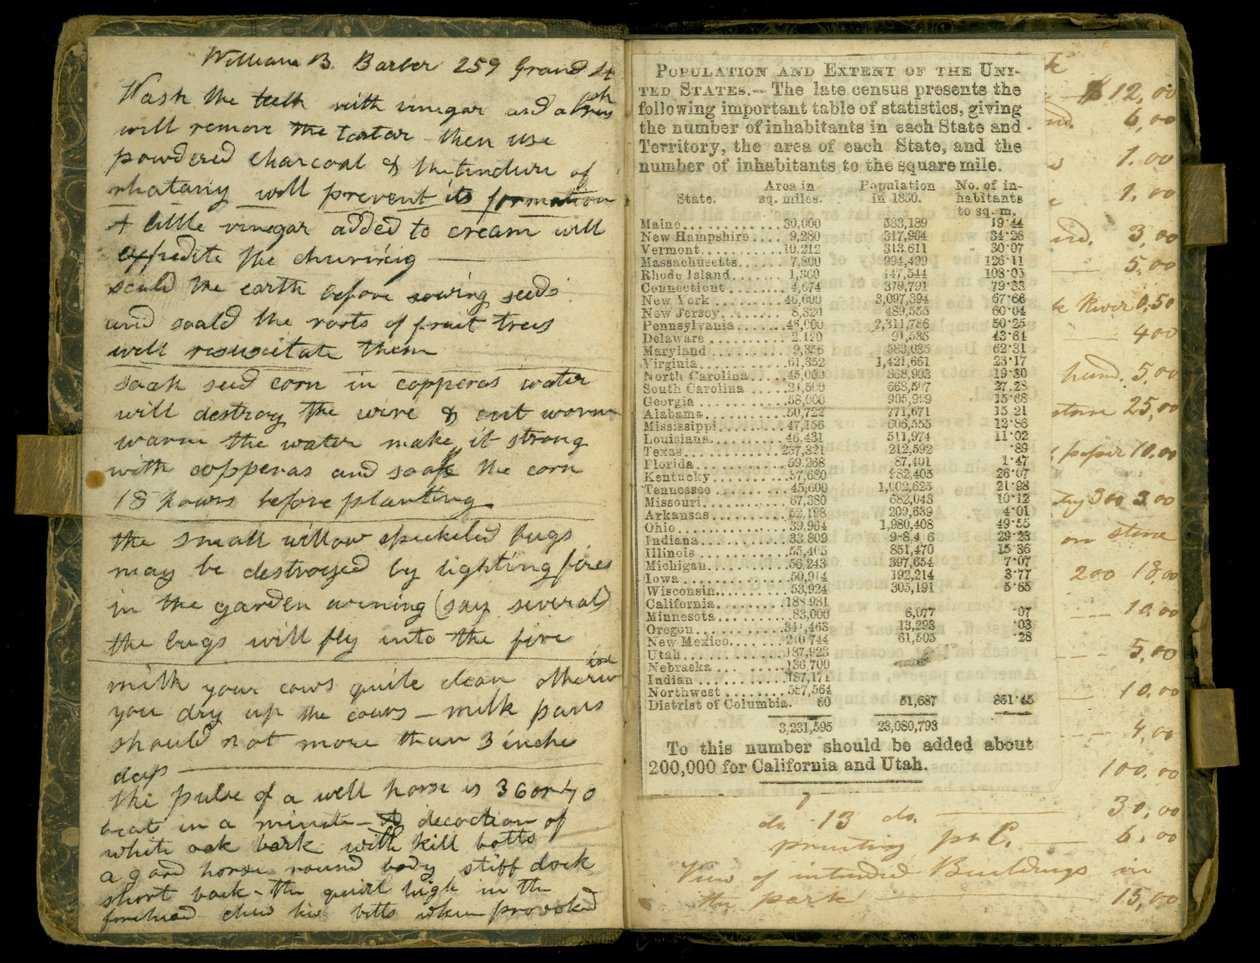 William B. Barber 259 Grand St
Wash the teeth with vinegar and a brush
will remove the tartar then use
powdered charcoal & the tincture of
rhatany will prevent its formation
A little vinegar added to cream will
expedite the churning
scald the earth before sowing seeds
and scald the roots of fruit trees
will resuscitate them
soak seed corn in copperas water
will destroy the wire & cut worm
warm the water make it strong
with copperas and soak the corn
18 hours before planting
the small willow speckeled bugs
may be destroyed by lighting fires
in the garden evening (say several)
the bugs will fly into the fire
milk your cows quite clean otherwise
you dry up the cows - milk pans
should not more than 3 inche
deep
the pulse of a well horse is 36 or 40
beats in a minute - decoction of
white oak bark will kill botts
a good horse round body stiff dock
short back - the quirl high in the
forehead chew his bitts when provoked
POPULATION AND EXTENT OF THE UNI-
TED STATES.— The late census presents the
following important table of statistics, giving
the number of inhabitants in each State and
Territory, the area of each State, and the
number of inhabitants to the square mile.
State. Area in sq. miles. Population in 1850. No. of in-habitants to sq. m.
Maine 30,000 583,189 19·44
New Hampshire 9,280 317,964 34·26
Vermont 10,212 313,611 30·07
Massachusetts 7,800 994,499 126·11
Rhode Island 1,300 147,544 108·05
Connecticut 4,674 370,791 79·33
New York 46,000 3,097,394 67·66
New Jersey 8,320 489,555 60·04
Pennsylvania 46,000 2,311,786 50·25
Delaware 2,120 91,535 43·64
Maryland 9,356 583,035 62·31
Virginia 61,352 1,421,661 23·17
North Carolina 45,000 868,903 19·30
South Carolina 24,500 668,507 27·28
Georgia 58,000 905,999 15·68
Alabama 50,722 771,671 15 21
Mississippi 47,156 606,555 12·86
Louisiana 46,431 511,974 11·02
Texas 237,321 212,592 ·89
Florida 59,268 87,401 1·47
Kentucky 37,680 982,405 26·07
Tennessee 45,600 1,002,625 21·98
Missouri 67,380 682,043 10·12
Arkansas 52,198 209,639 4·01
Ohio 39,964 1,980,408 49·55
Indiana 33,809 29·23
Illinois 55,405 851,470 15·36
Michigan 56,243 397,654 7·07
Iowa 50,914 192,214 3·77
Wisconsin 53,924 305,191 5·65
California 188,981
Minnesota 83,000 6,077 ·07
Oregon 341,463 13,293 ·03
New Mexico 210,744 61,505 ·28
Utah 187,923
Nebraska 136,700
Indian 187,171
Northwest 587,564
District of Columbia 60 51,687 861·45
3,231,595 23,080,793
To this number should be added about
200,000 for California and Utah.
$12,00
6,00
1.00
1.00
3,00
5,00
River 0,50
4 00
hund. 5,00
stone 25,00
paper 10,00
300 3.00
on stone
200 18,00
10,00
5,00
10,00
4,00
100,00
30,00
do 13 do.
printing pr C. 6,00
View of intended Buildings in
the park 15,00